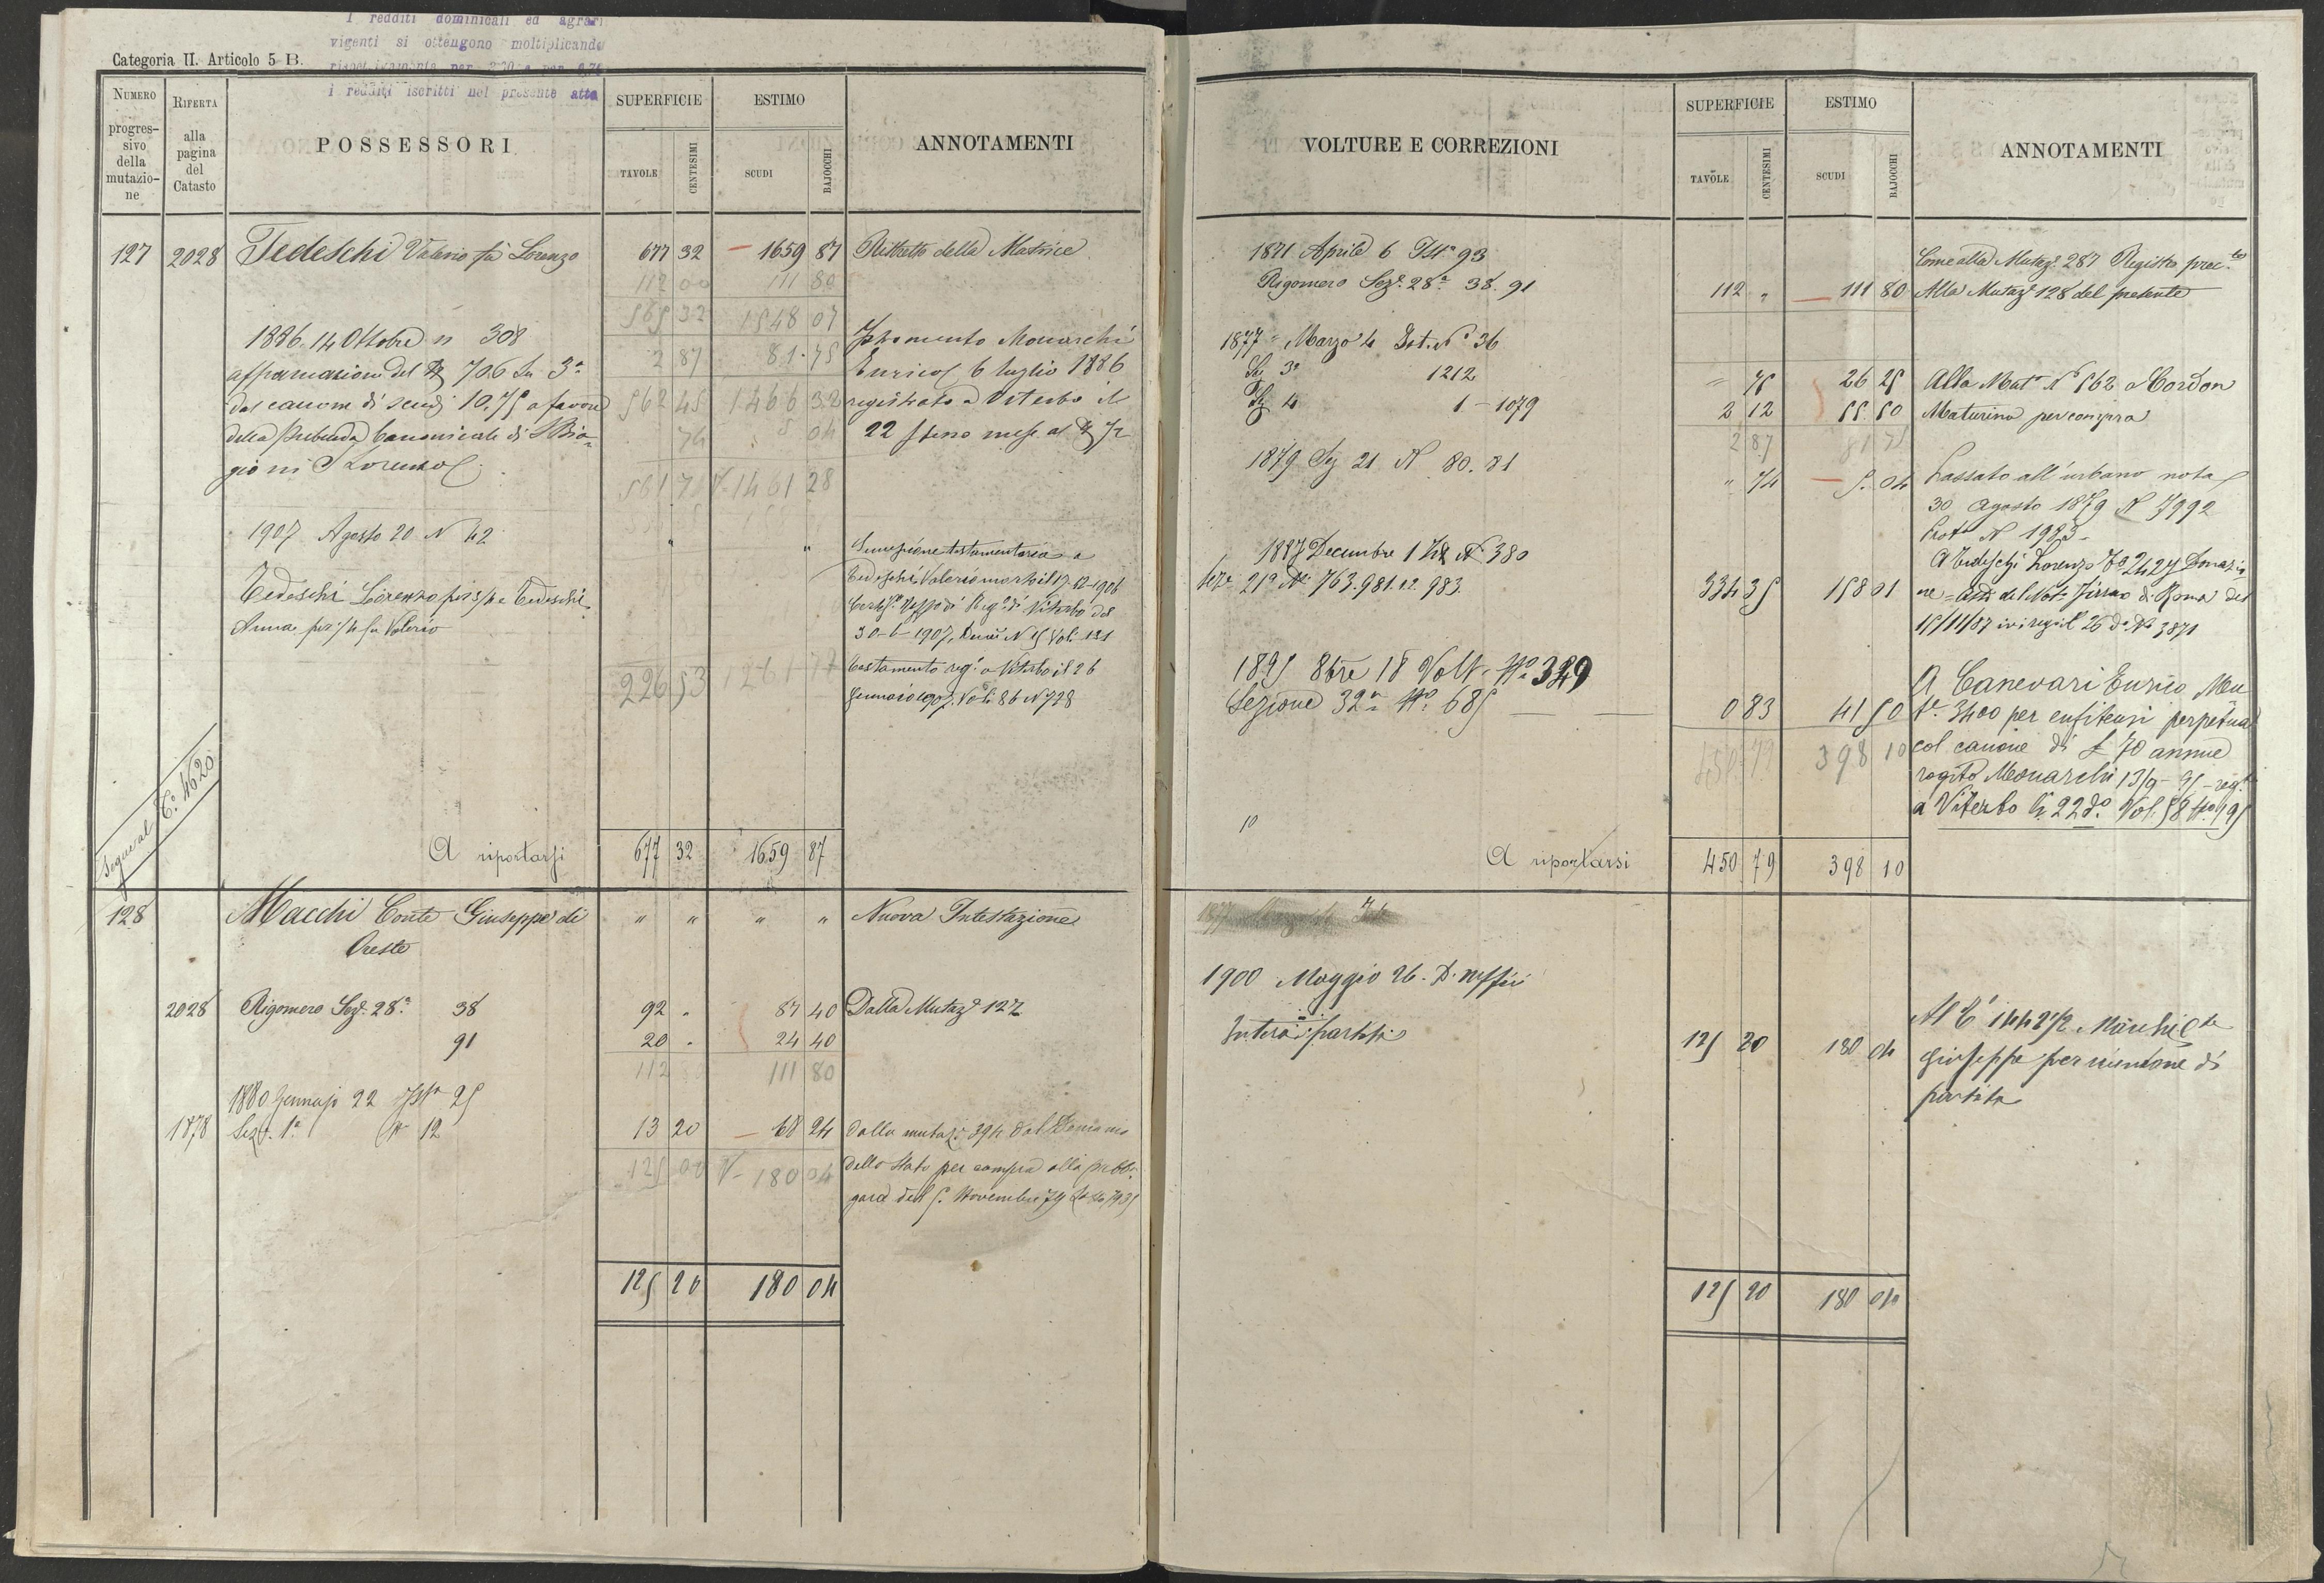 I redditi dominicali ed agrari
vigenti si ottengono moltiplicando
i redditi iscritti nel presente atto
Categoria II. Articolo 5 B.
NUMERO progres- sivo della mutazio- ne
RIFERTA alla pagina del Catasto
POSSESSORI
SUPERFICIE
TAVOLE
CENTESIMI
ESTIMO
SCUDI
BAJOCCHI
ANNOTAMENTI
127 2028 Tedeschi Valerio fu Lorenzo 677 32 1659 87 Ristretto della Matrice
112 00 111 80
565 32 1548 07
1886. 14 Ottobre n 308
2 87 81.75 Monarchi
affrancazione del 706 Sn 3ª Enrico 6 luglio 1886
del canone di scudi 10.75 a favore 562 45 1466 32 registrato a Viterbo il
della Prebenda Canonicale di S Bia- 74 5 04 22 mese al
gio in S Lorenzo
561 71 1461 28
1907 Agosto 20 N 42
" " Successione testamentaria a
Tedeschi Valerio morto il 17-12-1906
Tedeschi Lorenzo per 3/4 e Tedeschi
Anna per 1/4 fu Valerio
30-6-1907, N 15 Vol. 121
226 53 1261 77 testamento reg.º a Viterbo il 26
Gennaio 1907. Vol. 86 N 728
Segue al Cº. 4620
A riportarsi 677 32 1659 87
128 Macchi Conte Giuseppe di " " " " Nuova Intestazione
Oreste
2028 Rigomero Sezº. 28ª 38 92 " 87 40 Dalla Mutazº 127
91 20 " 24 40
112 111 80
1880 Gennajo 22 25
1878 Sez. 1ª 12 13 20 68 24 dalla mutaz. 394 dal Demanio
125 00 180 04 dello Stato per compra alla pubb.
gara del 5. Novembre 79
125 20 180 04
VOLTURE E CORREZIONI
SUPERFICIE
TAVOLE
CENTESIMI
ESTIMO
SCUDI
BAJOCCHI
ANNOTAMENTI
1871 Aprile 6 Istª 93 Come alla Mutazº. 287 Registro prec.te
Rigomero Sezº. 28ª 38. 91 112 " 111 80 Alla Mutazº 128 del presente
1877 Marzo 4 Ist. Nº 36
Sez 3ª 1212 " 75 26 25 Alla Mutª Nº 562 a Cordon
Sez 4 1-1079 2 12 55.50 Maturino per compra
2 87 81 75
1879 Sez 21 N 80. 81 " 74 5. 04 Passato all'urbano nota
30 Agosto 1879 N 7992
Protº N 1983
1887 Decembre 1 Nº 380 A Tedeschi Lorenzo 2427 Donazio-
Seze 21ª Ni 763.981. e 983. 334 35 158 01 ne = del Not. di Roma del
15/11/87 ivi reg. il 26 dº. Nº 3871
1895 8bre 18 Volt. Nº 349 A Canevari Enrico Mu
Sezione 32ª Nº 685 0 83 41 50 tº. 3400 per enfiteusi perpetua
450 79 398 10 col canone di £ 70 annue
rogito Monarchi 13/9-95-reg.to
a Viterbo li 22 dº. Vol. 58 Nº 195
10
A riportarsi 450 79 398 10
1900 Maggio 26.
Intera partita 125 20 180 04 Al Cº 1442 1/2 Macchi Cte
Giuseppe per riunione di
partita
125 20 180 04